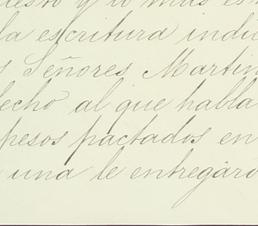 y lo mas
la escritura indi
s Señores Martin
echo al que habla
pesos pactados en
una le entregaro